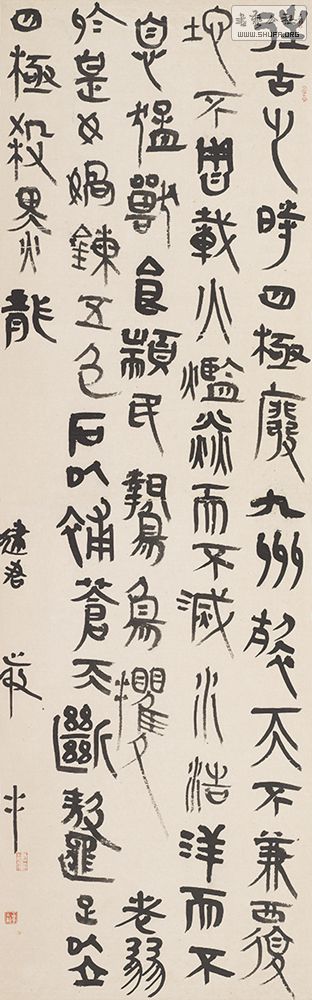 WWW.SHUFA.ORG
往古之時四極廢九州裂天不兼覆
地不周載火爁焱而不滅水浩洋而不
息猛獸食顓民鷙鳥攫老弱
於是女媧鍊五色石以補蒼天斷鼇足以立
四極殺黑龍